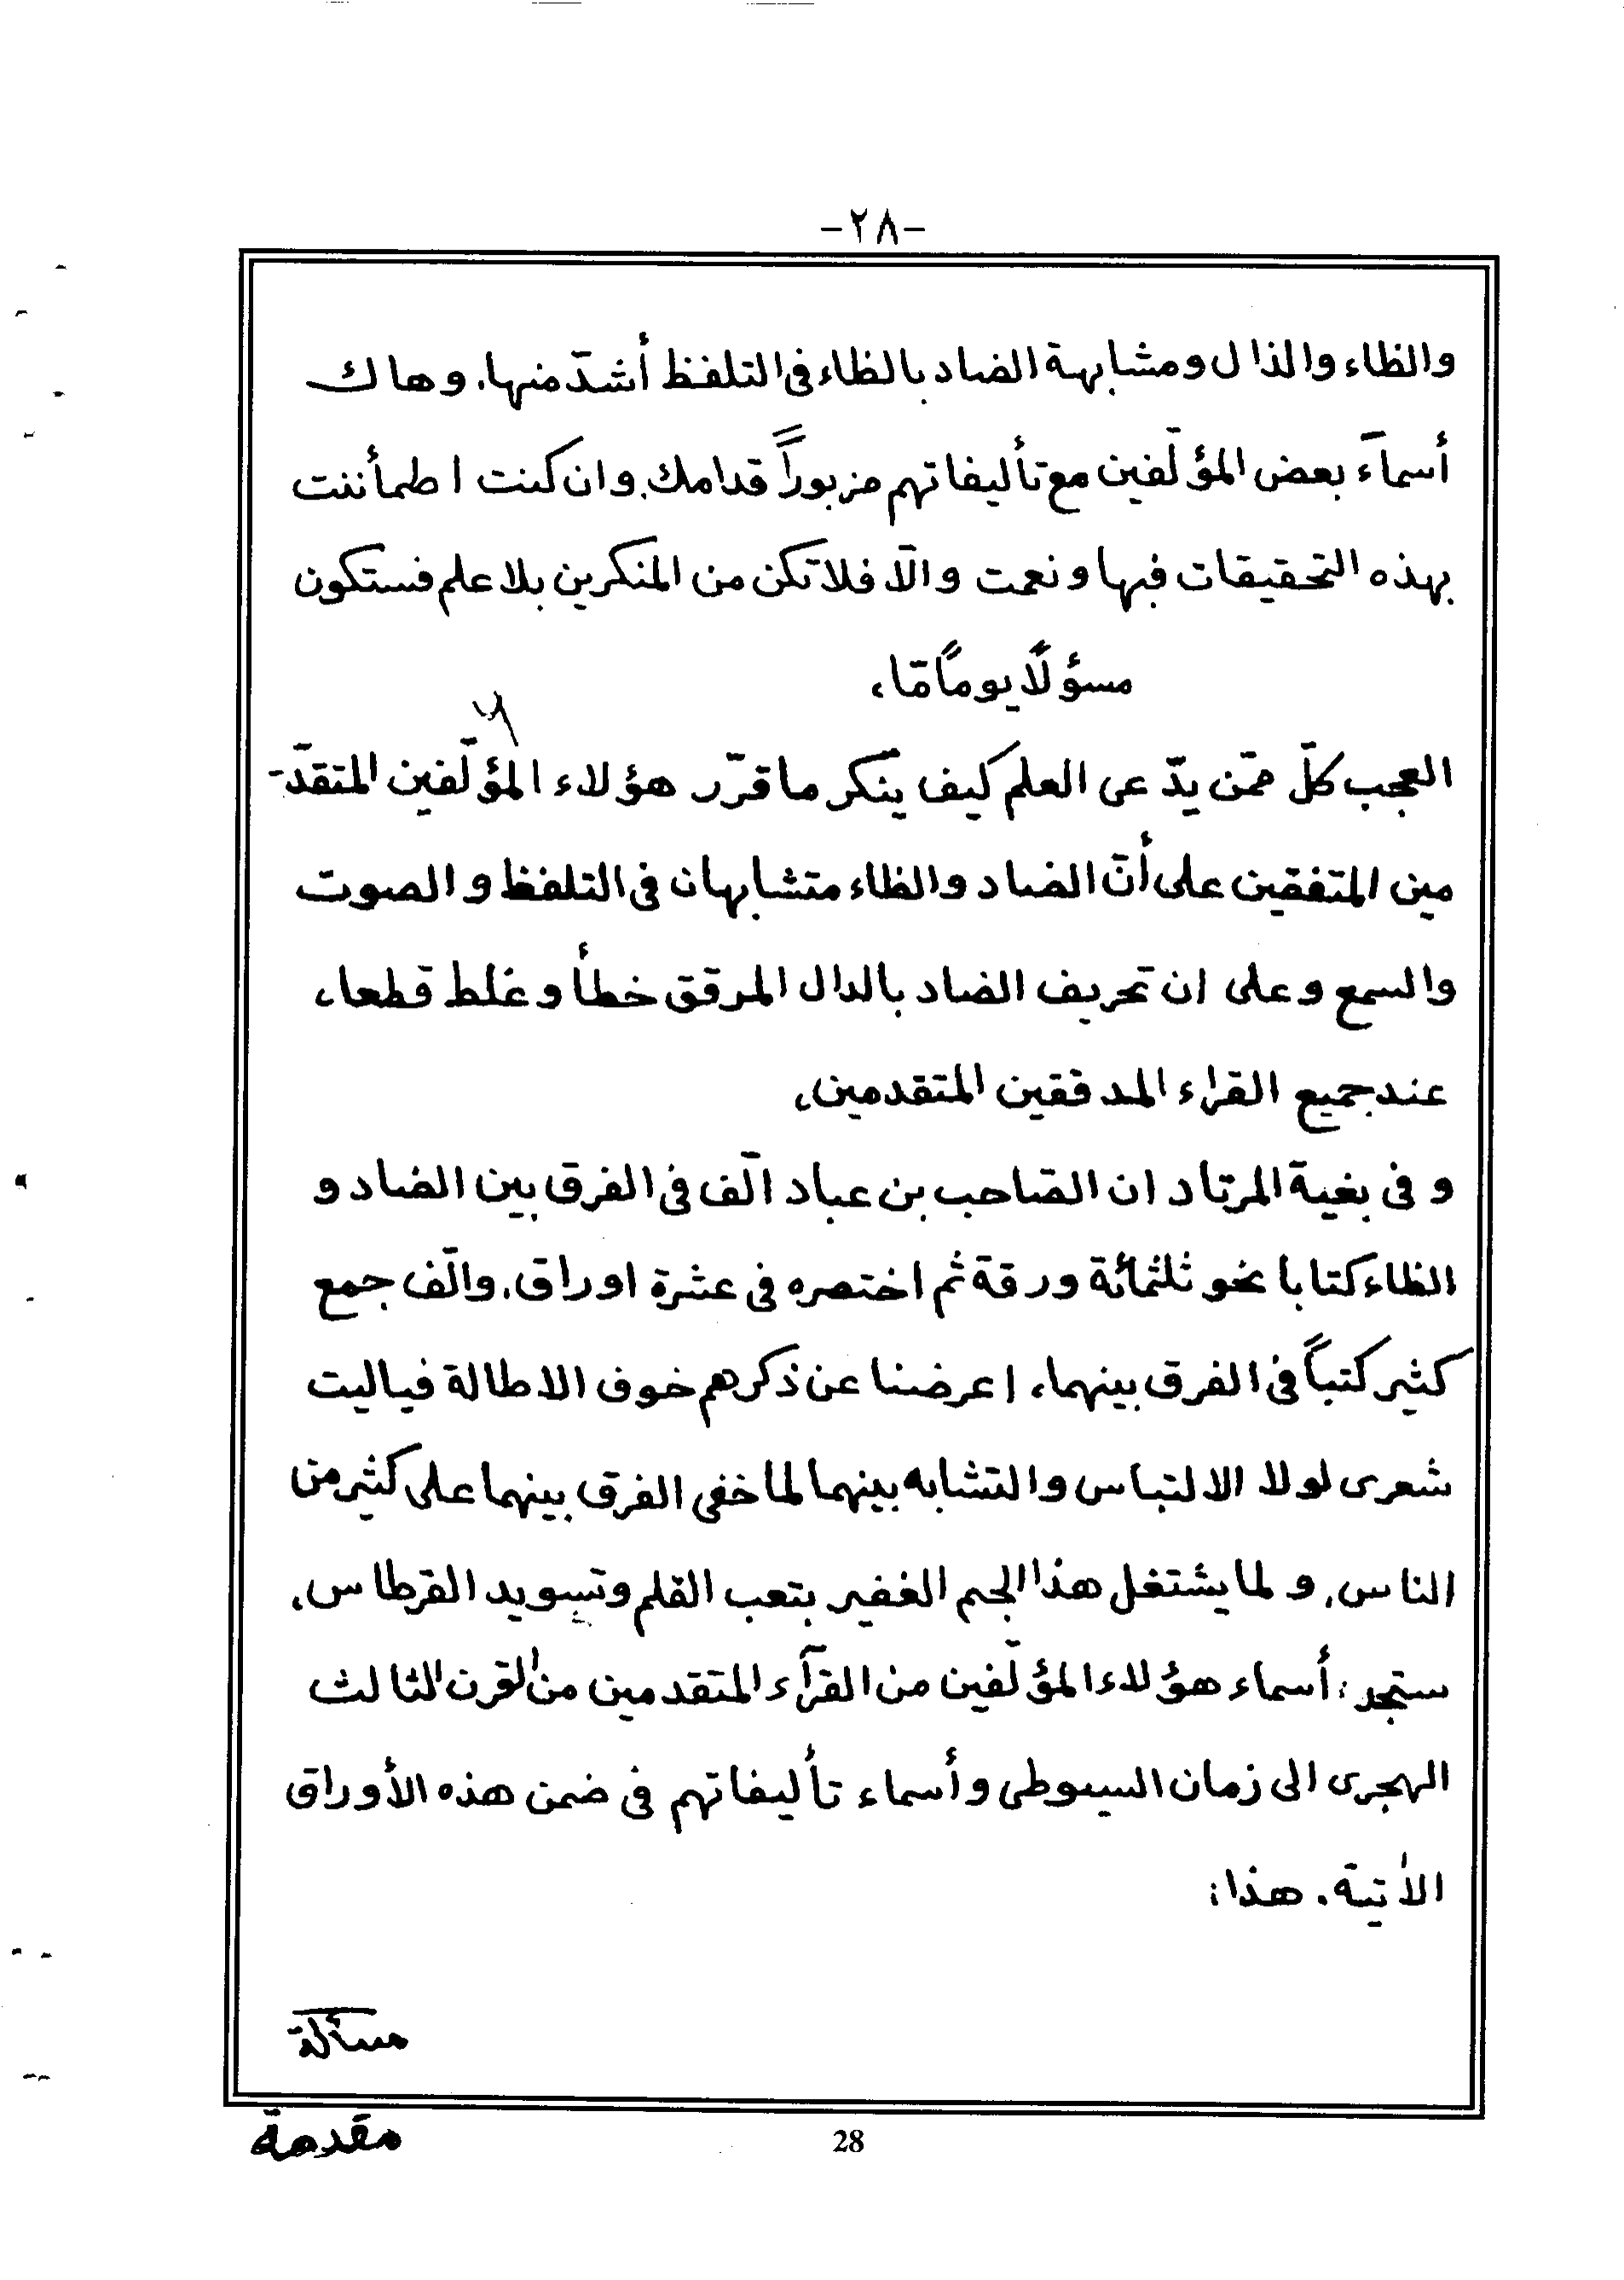 -٢٨-
والظاء والذال ومشابهة الضاد بالظاء فى التلفظ أشدّ منها. وهاك
أسمآء بعض المؤلّفين مع تأليفاتهم مزبوراً قدامك. وان كنت اطمأننت
بهذه التحقيقات فبها ونعمت والّا فلا تكن من المنكرين بلا علم فستكون
مسؤلًا يومًا مّا،
العجب كلّ ممّن يدّعى العلم كيف ينكر ما قرّر هؤلاء المؤلّفين المتقدّ-
مين المتفقين على أنّ الضاد والظاء متشابهان فى التلفظ والصوت
والسمع وعلى ان تحريف الضاد بالدال المرقق خطأ وغلط قطعا،
عند جميع القراء المدققين المتقدمين،
و فى بغية المرتاد ان الصّاحب بن عباد الّف فى الفرق بين الضاد و
الظاء كتابا نحو ثلثمائة ورقة ثم اختصره فى عشرة اوراق. والّف جمع
كثير كتباً فى الفرق بينهما، اعرضنا عن ذكرهم خوف الاطالة فياليت
شعرى لولا الالتباس والتشابه بينهما لما خفى الفرق بينهما على كثير من
الناس، و لما يشتغل هذا الجم الغفير بتعب القلم وتسويد القرطاس،
ستجد: أسماء هؤلاء المؤلّفين من القرآء المتقدمين من القرن الثالث
الهجرى الى زمان السيوطى وأسماء تأليفاتهم فى ضمن هذه الأوراق
الأتية. هذا:
مسألة
مقدمة
28